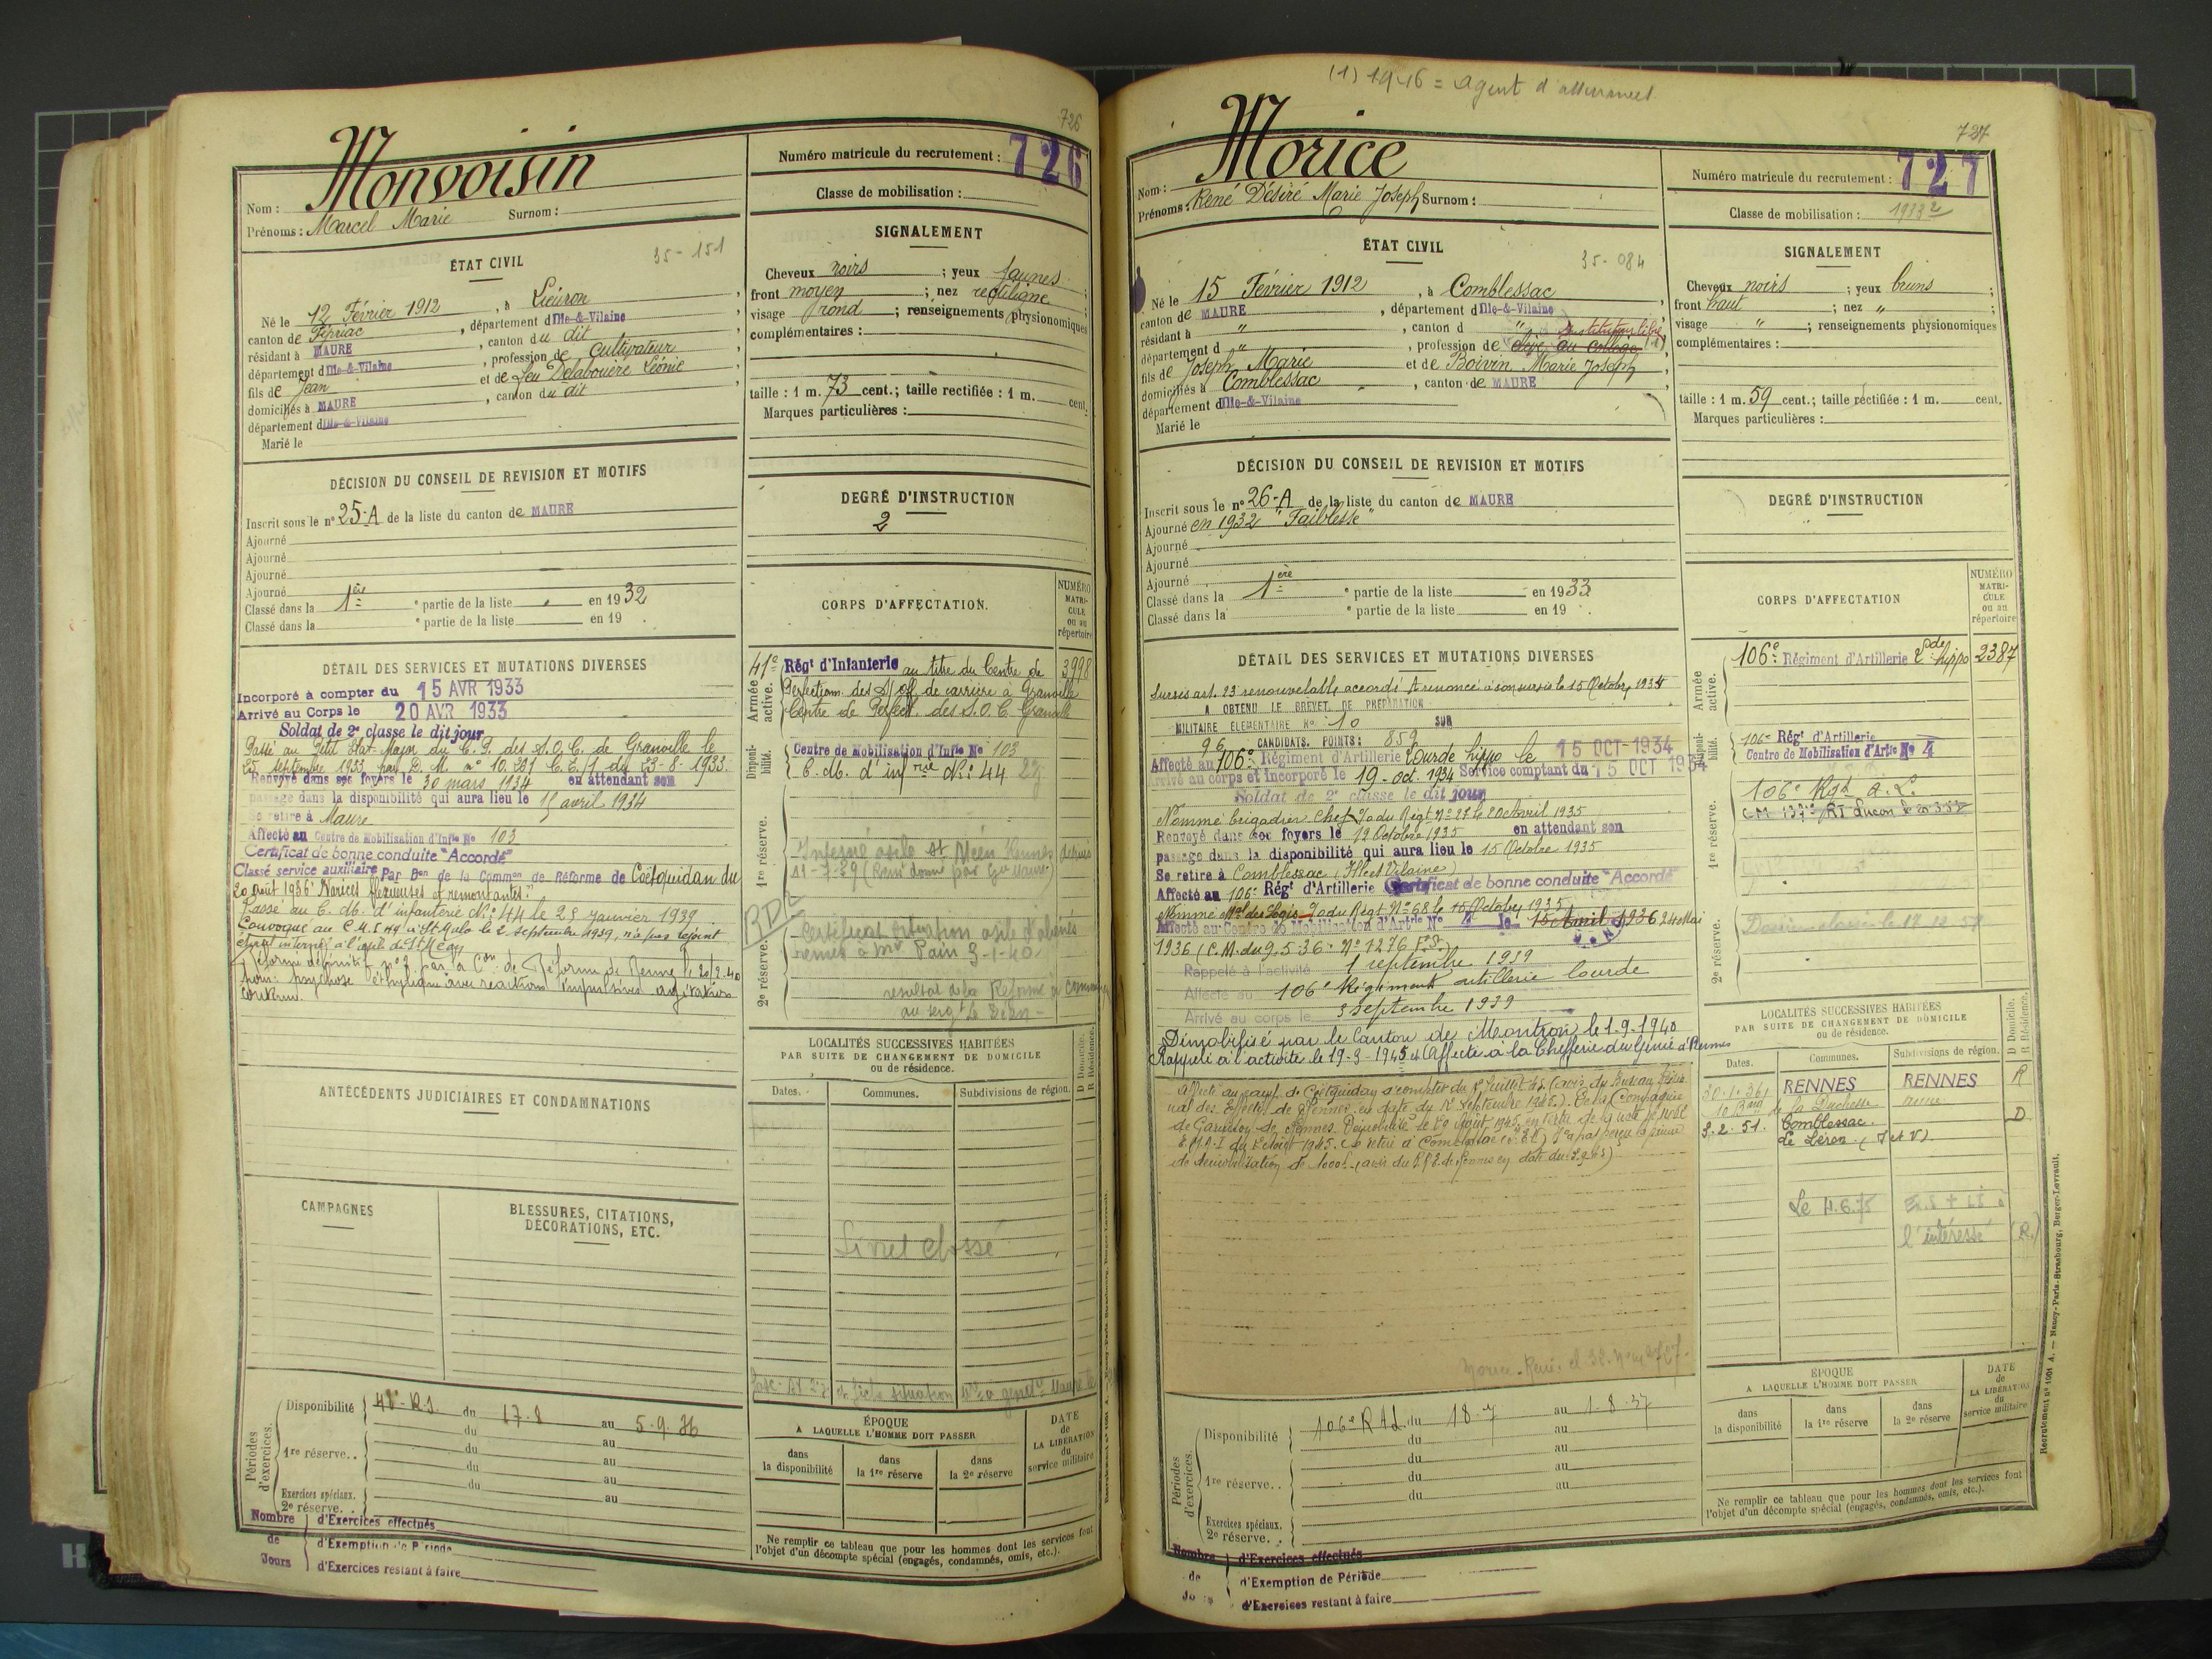 726
Numéro matricule du recrutement : 726
Classe de mobilisation :
Nom : Monvoisin
Prénoms : Marcel Marie Surnom :
ÉTAT CIVIL
35-151
Né le 12 Février 1912, à Lieuron
canton de Pipriac, département d'Ille-&-Vilaine
résidant à MAURE, canton du dit
département d'Ille-&-Vilaine, profession de Cultivateur
fils de Jean et de feu Delabouère Léonie
domiciliés à MAURE, canton du dit
département d'Ille-&-Vilaine
Marié le
SIGNALEMENT
Cheveux noirs ; yeux jaunes ;
front moyen ; nez rectiligne
visage rond ; renseignements physionomiques
complémentaires :
taille : 1 m. 73 cent. ; taille rectifiée : 1 m. cent.
Marques particulières :
DÉCISION DU CONSEIL DE REVISION ET MOTIFS
Inscrit sous le n° 25-A de la liste du canton de MAURE
Ajourné
Ajourné
Ajourné
Ajourné
Classé dans la 1ère e partie de la liste en 1932
Classé dans la e partie de la liste en 19 .
DEGRÉ D'INSTRUCTION
2
CORPS D'AFFECTATION.
NUMÉRO MATRICULE ou au répertoire
DÉTAIL DES SERVICES ET MUTATIONS DIVERSES
Incorporé à compter du 15 AVR 1933
Arrivé au Corps le 20 AVR 1933
Soldat de 2e classe le dit jour
Passé au Petit Etat-Major du C. P. des S.O.C. de Granville le
25 septembre 1933 par D. M. n° 10.291 C.E./1 du 23-8-1933.
Renvoyé dans ses foyers le 30 mars 1934 en attendant son
passage dans la disponibilité qui aura lieu le 15 avril 1934
Se retire à Maure
Affecté au Centre de Mobilisation d'Infie No 103
Certificat de bonne conduite "Accordé"
Classé service auxiliaire par Don de la Common de Réforme de Coëtquidan du
20 août 1936 "Varices flexueuses et remontantes."
Passé au C. M. d'infanterie N° 44 le 25 Janvier 1939
Convoqué au C.M.I. 44 à St Malo le 2 septembre 1939, n'a pas rejoint
étant interné à l'asile de St Méen
Réformé définitif n° 2 par la Con de Réforme de Rennes le 20.2.40
pour : psychose éthylique avec réactions impulsives agitation
Armée active.
41e Régt d'Infanterie au titre du Centre de 3998
Perfectionn. des S/off. de carrière à Granville
Centre de Perfect. des S.O.C. Granville
Disponibilité.
Centre de Mobilisation d'Infie No 103
C. M. d'infrie N° : 44
1re réserve.
Interné asile St Méen Rennes depuis
11-7-39
2e réserve.
Certificat situation asile d'aliénés
remis à Mr Pain 3-1-40.
résultat de la Réforme à
LOCALITÉS SUCCESSIVES HABITÉES
PAR SUITE DE CHANGEMENT DE DOMICILE
ou de résidence.
Dates. Communes. Subdivisions de région. D Domicile. R Résidence.
ANTÉCÉDENTS JUDICIAIRES ET CONDAMNATIONS
CAMPAGNES
BLESSURES, CITATIONS, DÉCORATIONS, ETC.
Livret classé
Périodes d'exercices.
Disponibilité du 17.8 au 5.9.36
du au
1re réserve.. du au
du au
du au
Exercices spéciaux.
2e réserve.. au
ÉPOQUE
A LAQUELLE L'HOMME DOIT PASSER
dans la disponibilité
dans la 1re réserve
dans la 2e réserve
DATE de LA LIBÉRATION du service militaire
Ne remplir ce tableau que pour les hommes dont les services font
l'objet d'un décompte spécial (engagés, condamnés, omis, etc.).
Nombre de Jours
d'Exercices effectués
d'Exemption de Période
d'Exercices restant à faire
(1) 1946 = agent d'assurances
727
Numéro matricule du recrutement : 727
Classe de mobilisation : 1933 2
Nom : Morice
Prénoms : René Désiré Marie Joseph Surnom :
ÉTAT CIVIL
35-084
Né le 15 Février 1912, à Comblessac
canton de MAURE, département d'Ille-&-Vilaine
résidant à ", canton d "
département d ", profession de élève au collège Instituteur libre (1)
fils de Joseph Marie et de Boivin Marie Joseph
domiciliés à Comblessac, canton de MAURE
département d'Ille-&-Vilaine
Marié le
SIGNALEMENT
Cheveux noirs ; yeux bruns ;
front haut ; nez "
visage " ; renseignements physionomiques
complémentaires :
taille : 1 m. 59 cent. ; taille rectifiée : 1 m. cent.
Marques particulières :
DÉCISION DU CONSEIL DE REVISION ET MOTIFS
Inscrit sous le n° 26-A de la liste du canton de MAURE
Ajourné en 1932 "Faiblesse"
Ajourné
Ajourné
Ajourné
Classé dans la 1ère e partie de la liste en 1933
Classé dans la e partie de la liste en 19 .
DEGRÉ D'INSTRUCTION
CORPS D'AFFECTATION
NUMÉRO MATRICULE ou au répertoire
DÉTAIL DES SERVICES ET MUTATIONS DIVERSES
Sursis art. 23 renouvelable accordé. A renoncé à son sursis le 15 Octobre 1934
A OBTENU LE BREVET DE PREPARATION
MILITAIRE ELEMENTAIRE No 10 SUR
96 CANDIDATS. POINTS : 859
Affecté au 106e Régiment d'Artillerie Lourde hippo le 15 OCT 1934
Arrivé au corps et incorporé le 19 oct. 1934 Service comptant du 15 OCT 1934
Soldat de 2e classe le dit jour
Nommé Brigadier Chef O du Régt N° 27 le 20 Avril 1935
Renvoyé dans ses foyers le 12 Octobre 1935 en attendant son
passage dans la disponibilité qui aura lieu le 15 Octobre 1935
Se retire à Comblessac (Ille et Vilaine)
Affecté au 106e Régt d'Artillerie Certificat de bonne conduite "Accordé"
Nommé Mal des Logis O du Régt N° 68 le 15 Octobre 1935
Affecté au Centre de Mobilisation d'Artie No 4 le 15 Avril 1936 24 Mai
1936 (C.M. du 9.5.36 N° 1276 P.S.)
Rappelé à l'activité 1 septembre 1939
Affecté au 106e Régiment artillerie lourde
Arrivé au corps le 3 septembre 1939
Démobilisé par le Canton de Montron le 1.9.1940
Rappelé à l'activité le 19-3-1945 et Affecté à la Chefferie du Génie d'Rennes
Armée active.
106e Régiment d'Artillerie Lde hippo 2387
Disponibilité.
106e Régt d'Artillerie
Centre de Mobilisation d'Artie No 4
1re réserve.
106e Rgt A. L.
2e réserve.
LOCALITÉS SUCCESSIVES HABITÉES
PAR SUITE DE CHANGEMENT DE DOMICILE
ou de résidence.
Dates. Communes. Subdivisions de région. D Domicile. R Résidence.
30.1.36 RENNES RENNES R
de la Duchesse
3.2.51. Comblessac D
(I et V)
Le 4.6.75
l'intéressé (R.)
Périodes d'exercices.
Disponibilité 106e RAL du 18-7 au 1-8-37
du au
du au
1re réserve.. du au
du au
Exercices spéciaux.
2e réserve..
ÉPOQUE
A LAQUELLE L'HOMME DOIT PASSER
dans la disponibilité
dans la 1re réserve
dans la 2e réserve
DATE de LA LIBÉRATION du service militaire
Ne remplir ce tableau que pour les hommes dont les services font
l'objet d'un décompte spécial (engagés, condamnés, omis, etc.).
Recrutement N° 1061 A. — Nancy-Paris-Strasbourg, Berger-Levrault.
Nombre de
d'Exercices effectués
d'Exemption de Période
d'Exercices restant à faire